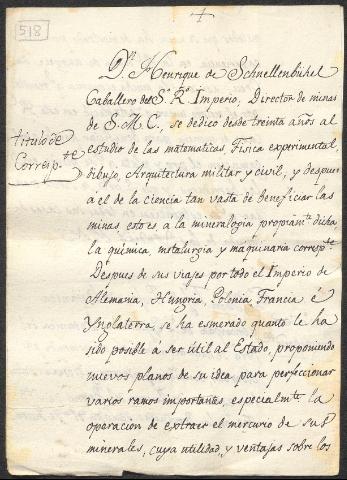 518
Dn. Henrique de Schnellenbühel
Caballero del S.R.º Imperio, Director de minas
de S. M. C., se dedicó desde treinta años al
estudio de las matematicas Fisica experimental,
dibujo, Arquitectura militar y civil, y despues
á el de la ciencia tan vasta de beneficiar las
minas, esto es á la mineralogia propiamte. dicha
la quimica, metalurgia y maquinaria correspte.
Despues de sus viajes por todo el Imperio de
Alemania, Hungria, Polonia Francia é
Ynglaterra, se ha esmerado quanto le há
sido posible á ser útil al Estado, proponiendo
nuevos planos de su idea para perfeccionar
varios ramos importantes, especialmte. la
operacion de extraer el mercurio de sus
minerales, cuya utilidad, y ventajas sobre los
titulo de
Corresp.te